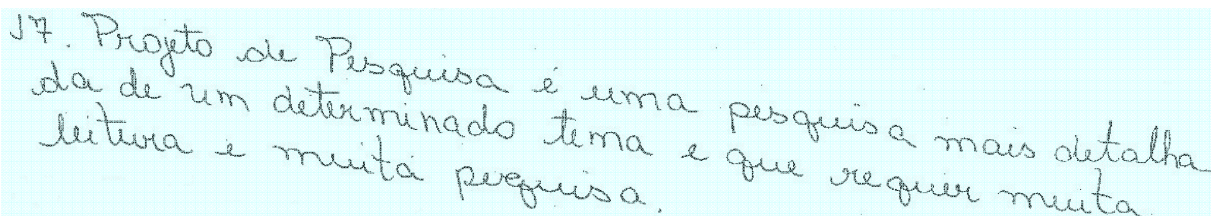 17. Projeto de Pesquisa é uma pesquisa mais detalha
da de um determinado tema e que requer muita
leitura e muita pesquisa.